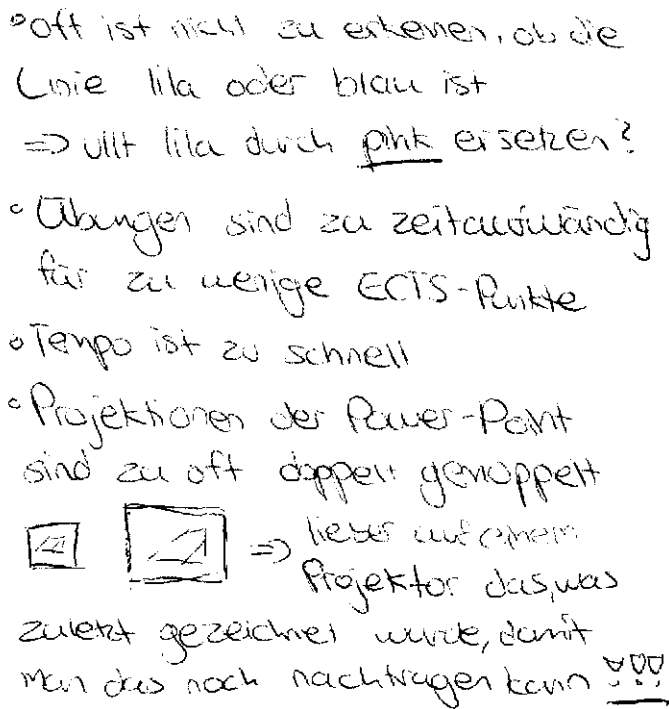 ° oft ist nicht zu erkenen, ob die
Linie lila oder blau ist
=> vllt lila durch pink ersetzen?
° Übungen sind zu zeitaufwändig
für zu wenige ECTS-Punkte
° Tempo ist zu schnell
° Projektionen der Power-Point
sind zu oft doppelt gemoppelt
=> lieber auf einem
Projektor das, was
zuletzt gezeichnet wurde, damit
man das noch nachtragen kann !!!